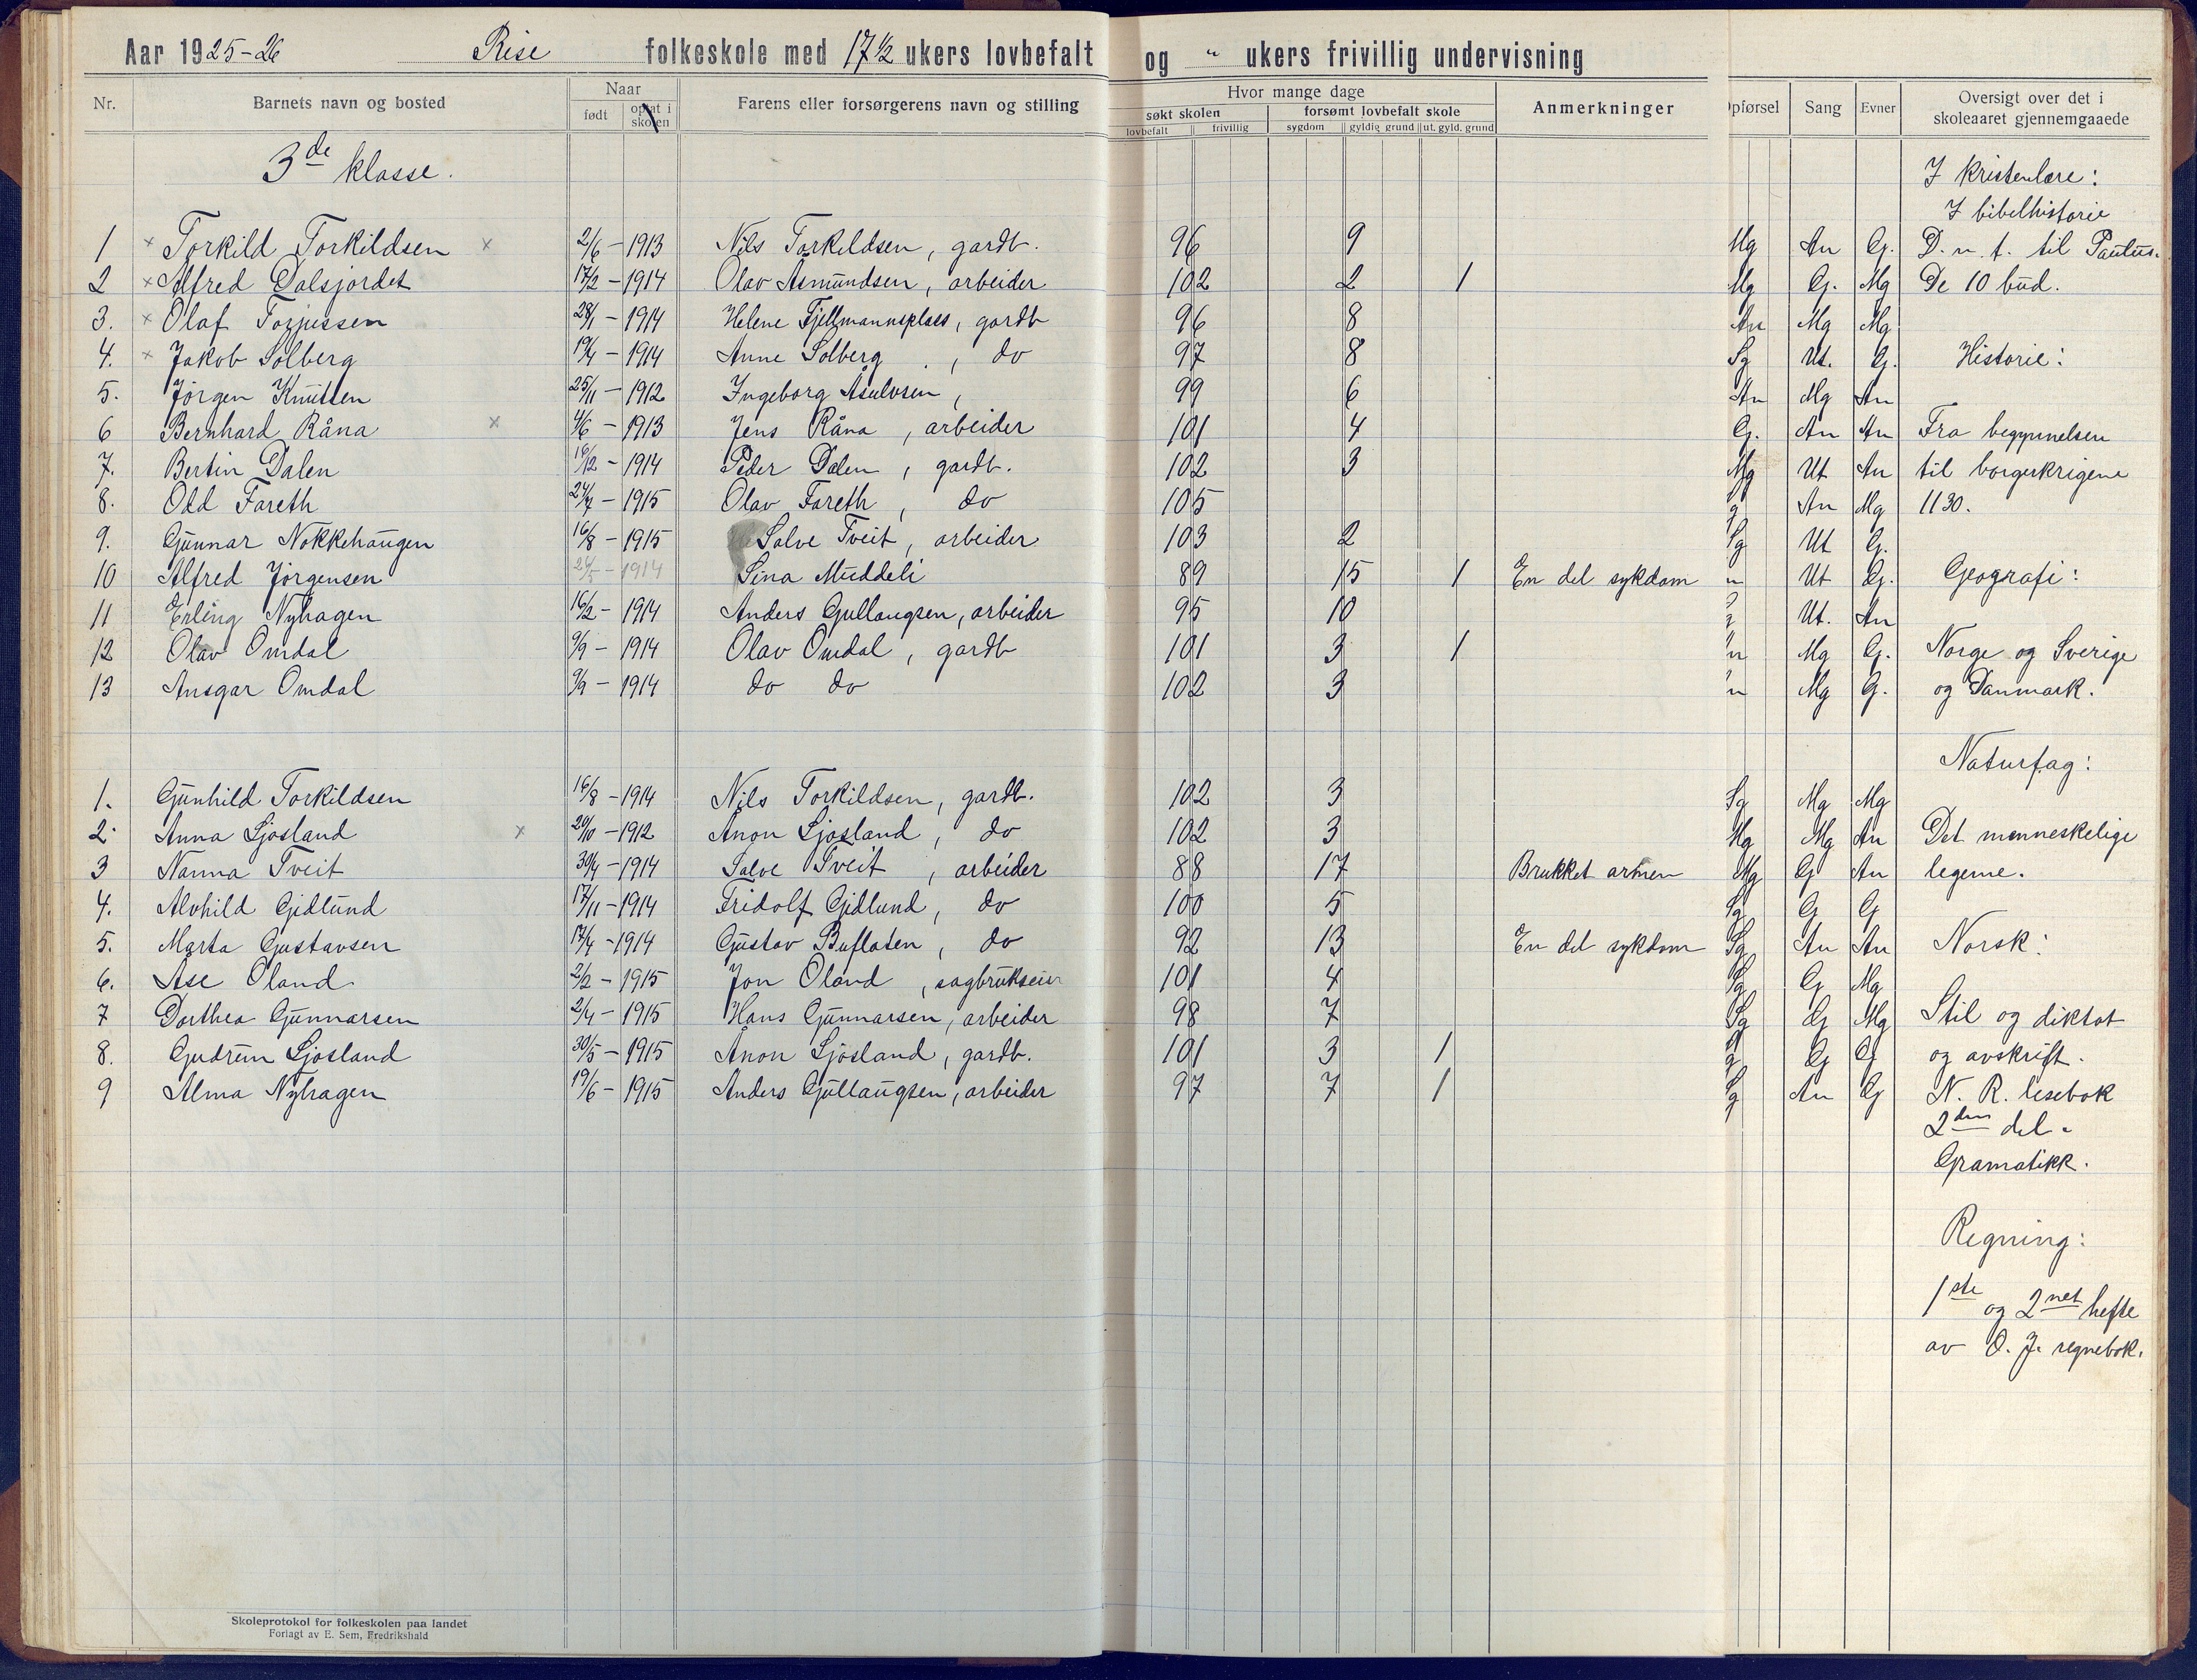 Aar 1925-26 Rise folkeskole med 17½ ukers lovbefalt og " ukers frivillig undervisning
Nr. Barnets navn og bosted Naar født optat i skolen Farens eller forsørgerens navn og stilling Hvor mange dage søkt skolen lovbefalt frivillig forsømt lovbefalt skole sygdom gyldig grund ut. gyld. grund Anmerkninger pførsel Sang Evner Oversigt over det i skoleaaret gjennemgaaede
3de klasse. I kristenlære:
I bibelhistorie
1 × Torkild Torkildsen × 2/6 - 1913 Nils Torkildsen, gardb. 96 9 Mg An G. D. n. t. til Paulus.
2 × Alfred Dalsjordet 17/2 - 1914 Olav Asmundsen, arbeider 102 2 1 Mg G. Mg De 10 bud.
3. × Olaf Torjussen 28/1 - 1914 Helene Fjellmannsplass, gardb 96 8 An Mg Mg
4. × Jakob Solberg 19/4 - 1914 Anne Solberg, do 97 8 Sg Ut. G. Historie:
5. Jörgen Knutsen 25/11 - 1912 Ingeborg Asulvsen, 99 6 An Mg An
6 Bernhard Råna × 4/6 - 1913 Jens Råna, arbeider 101 4 G. An An Fra begynnelsen
7. Bertin Dalen 16/12 - 1914 Peder Dalen, gardb. 102 3 Mg Ut An til borgerkrigene
8. Odd Fareth - 1915 Olav Fareth, do 105 g An Mg 1130.
9. Gunnar Nokkehaugen 16/8 - 1915 Salve Tveit, arbeider 103 2 Sg Ut G.
10 Alfred Jörgensen - 1914 Sina Muddeli 89 15 1 En del sykdom n Ut G. Geografi:
11 Erling Nyhagen 16/2 - 1914 Anders Gullaugsen, arbeider 95 10 Ut. An
12 Olav Omdal 9/9 - 1914 Olav Omdal, gardb 101 3 1 n Mg G. Norge og Sverige
13 Ansgar Omdal 9/9 - 1914 do do 102 3 n Mg G. og Danmark.
Naturfag:
1. Gunhild Torkildsen 16/8 - 1914 Nils Torkildsen, gardb. 102 3 Sg Mg Mg
2. Anna Ljosland × 20/10 - 1912 Ånon Ljosland, do 102 3 Mg Mg An Det menneskelige
3 Nanna Tveit 30/4 - 1914 Salve Tveit, arbeider 88 17 Brukket armen Mg G An legeme.
4. Alvhild Gidlund 17/11 - 1914 Fridolf Gidlund, do 100 5 Sg G G
5. Marta Gustavsen 17/4 - 1914 Gustav Buflaten, do 92 13 En del sykdom Sg An An Norsk:
6. Åse Öland 2/2 - 1915 Jon Öland, sagbrukseier 101 4 Sg G Mg
7 Dorthea Gunnarsen 2/4 - 1915 Hans Gunnarsen, arbeider 98 7 Sg G Mg Stil og diktat
8. Gudrun Ljosland 30/5 - 1915 Ånon Ljosland, gardb. 101 3 1 g G G og avskrift.
9 Alma Nyhagen 19/6 - 1915 Anders Gullaugsen, arbeider 97 7 1 Sg An G N. R. lesebok
2den del.
Gramatikk.
Regning:
1ste og 2net hefte
av O. J. regnebok.
Skoleprotokol for folkeskolen paa landet
Forlagt av E. Sem, Fredrikshald